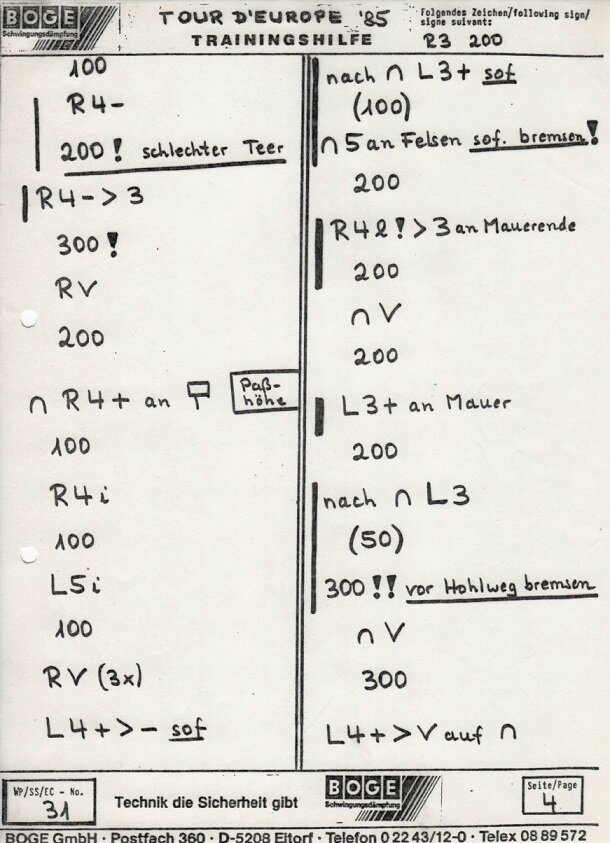 BOGE
Schwingungsdämpfung
TOUR D'EUROPE '85
TRAININGSHILFE
Folgendes Zeichen/following sign/
signe suivant:
R3 200
100
R4-
200! schlechter Teer
R4->3
300!
RV
200
∩ R4+ an
Paß-
höhe
100
R4i
100
L5i
100
RV (3x)
L4+>- sof
nach ∩ L3+ sof
(100)
∩5 an Felsen sof. bremsen!
200
R4l!>3 an Mauerende
200
∩V
200
L3+ an Mauer
200
nach ∩ L3
(50)
300!! vor Hohlweg bremsen
∩V
300
L4+>V auf ∩
WP/SS/EC - No.
31
Technik die Sicherheit gibt
BOGE
Schwingungsdämpfung
Seite/Page
4
BOGE GmbH · Postfach 360 · D-5208 Eitorf · Telefon 0 22 43/12-0 · Telex 08 89 572